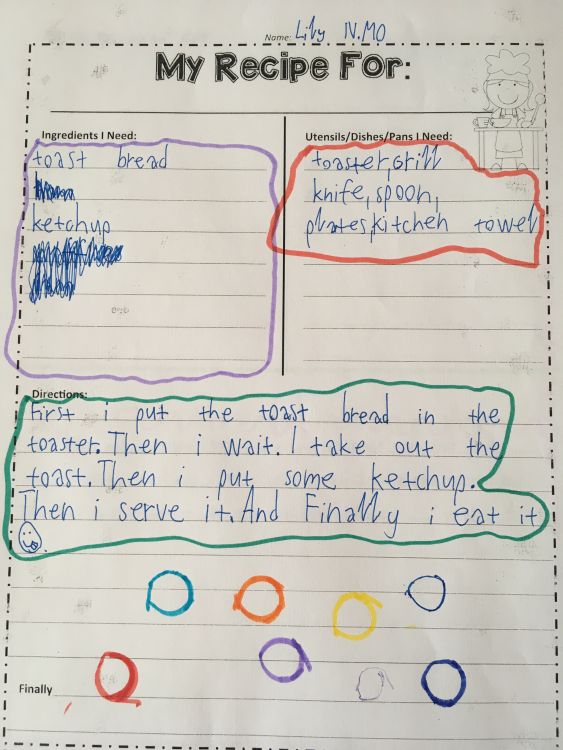 Name: Lily N.MO
My Recipe For:
Ingredients I Need:
toast bread
ketchup
Utensils/Dishes/Pans I Need:
toaster, grill
knife, spoon,
plates, kitchen towel
Directions:
First i put the toast bread in the
toaster. Then i wait. I take out the
toast. Then i put some ketchup.
Then i serve it. And Finally i eat it
Finally